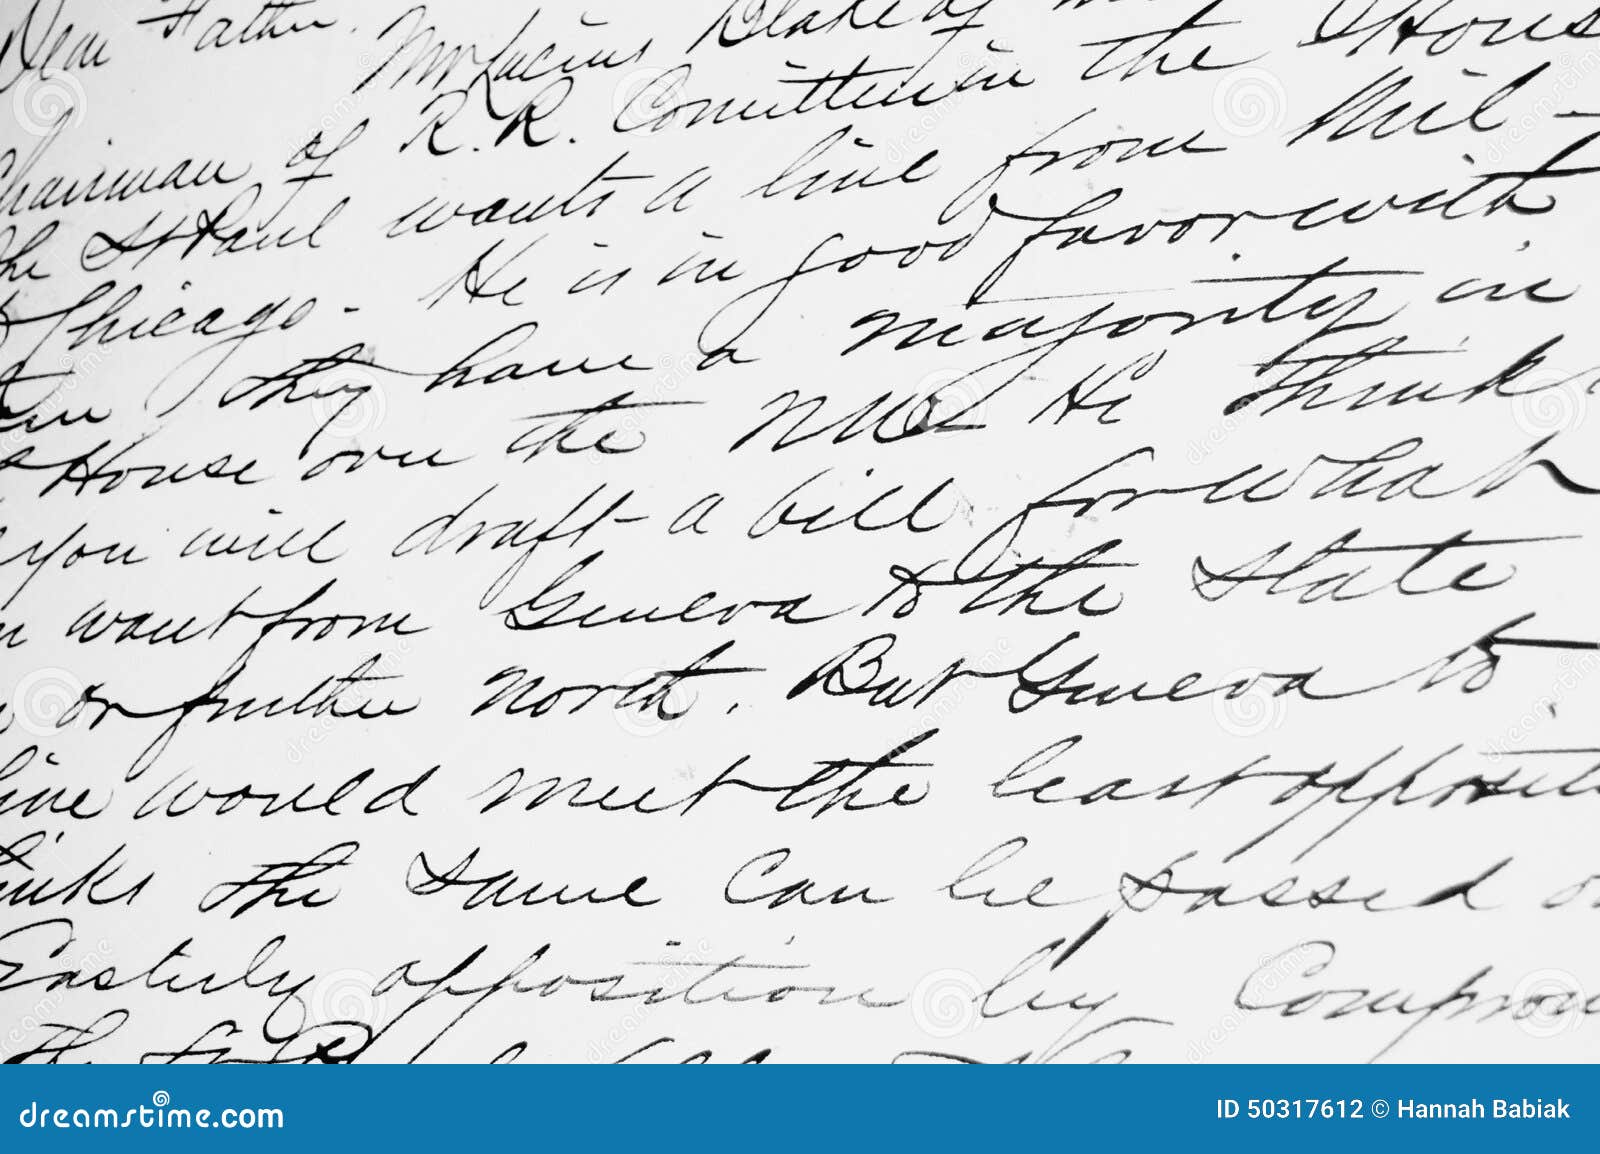 Dear Father.
Mr Lucius Blake of
Chairman of R.R. Comittee in the Hous
the St Paul wants a line from Mil-
Chicago- He is in good favor with
they have a majority in
House over the NW He thinks
you will draft a bill for what
want from Geneva to the State
or further north. But Geneva to
line would meet the least oppositi
thinks the same can be passed
Easterly opposition by Comprom
the St P
dreamstime.com
ID 50317612 © Hannah Babiak